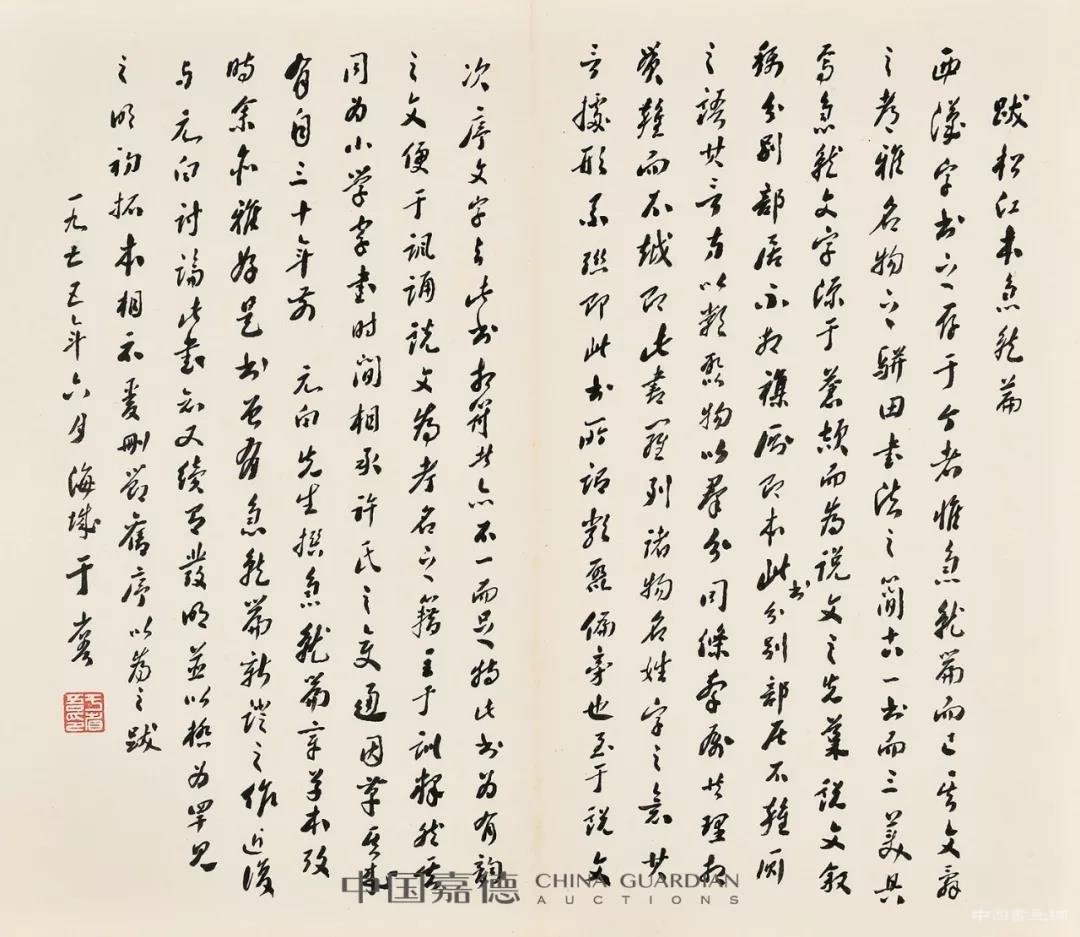 跋松江本急就篇
西汉字书之存于今者惟急就篇而已其文辞
之尔雅名物之骈田书法之简古一书而三美具
焉急就文字源于苍颉而为说文之先叶说文叙
称分别部居不相杂厕即本此书分别部居不杂厕
之语其言方以类聚物以群分同条牵属共理相
贯杂而不越即此书罗列诸物名姓字之意其
言据形系联即此书所谓类聚偏旁也至于说文
次序文字与此书相符者亦不一而足特此书为有韵
之文便于讽诵说文为考名之籍主于训释然其
同为小学字书时间相承许氏之变通因革其来
有自三十年前 元白先生撰急就篇章草本考
时余亦雅好是书曾有急就篇新证之作近复
与元白讨论此书知又续有发明并以极为罕见
之明初拓本相示爰删节旧序以为之跋
一九七五年六月 海城于省吾
于省吾印
中国嘉德 CHINA GUARDIAN
AUCTIONS
中国书画网